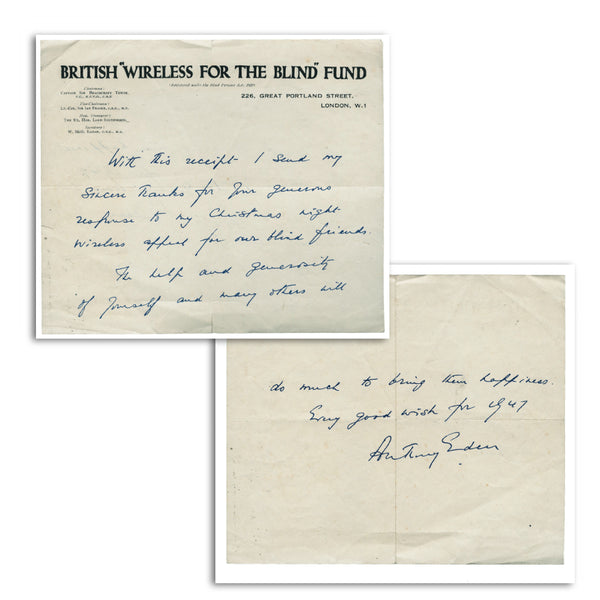 BRITISH "WIRELESS FOR THE BLIND" FUND
(Registered under the Blind Persons Act, 1920)
226, GREAT PORTLAND STREET,
LONDON, W.1
Chairman:
CAPTAIN SIR BEACHCROFT TOWSE,
Vice-Chairman:
LT.-COL. SIR IAN FRASER, C.B.E., M.P.
Hon. Treasurer:
THE RT. HON. LORD SOUTHWOOD.
Secretary:
W. MCG. EAGAR, C.B.E., M.A.
With this receipt I send my
sincere thanks for your generous
response to my Christmas night
wireless appeal for our blind friends.
The help and generosity
of yourself and many others will
do much to bring them happiness.
Every good wish for 1947
Anthony Eden